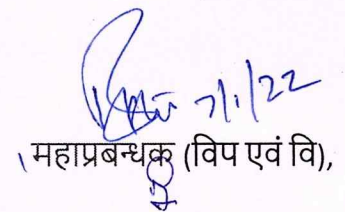 7/1/22
महाप्रबन्धक (विप एवं वि),